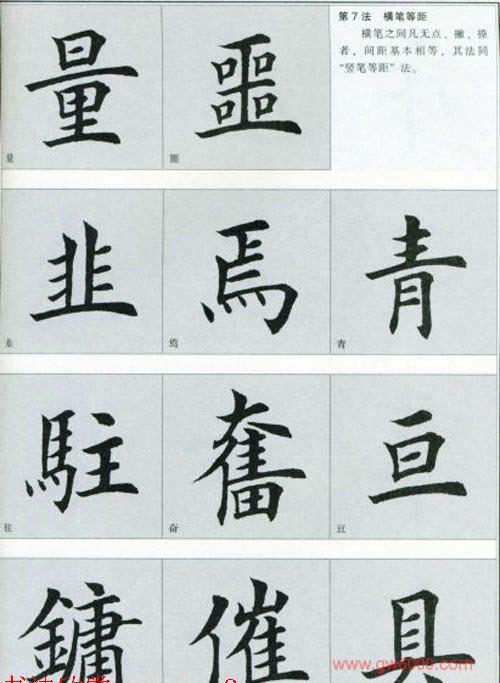 第7法 横笔等距
横笔之间凡无点、撇、捺
者，间距基本相等，其法同
“竖笔等距”法。
量 噩
量 噩
韭 焉 青
韭 焉 青
駐 奮 亘
驻 奋 亘
鏞 催 具